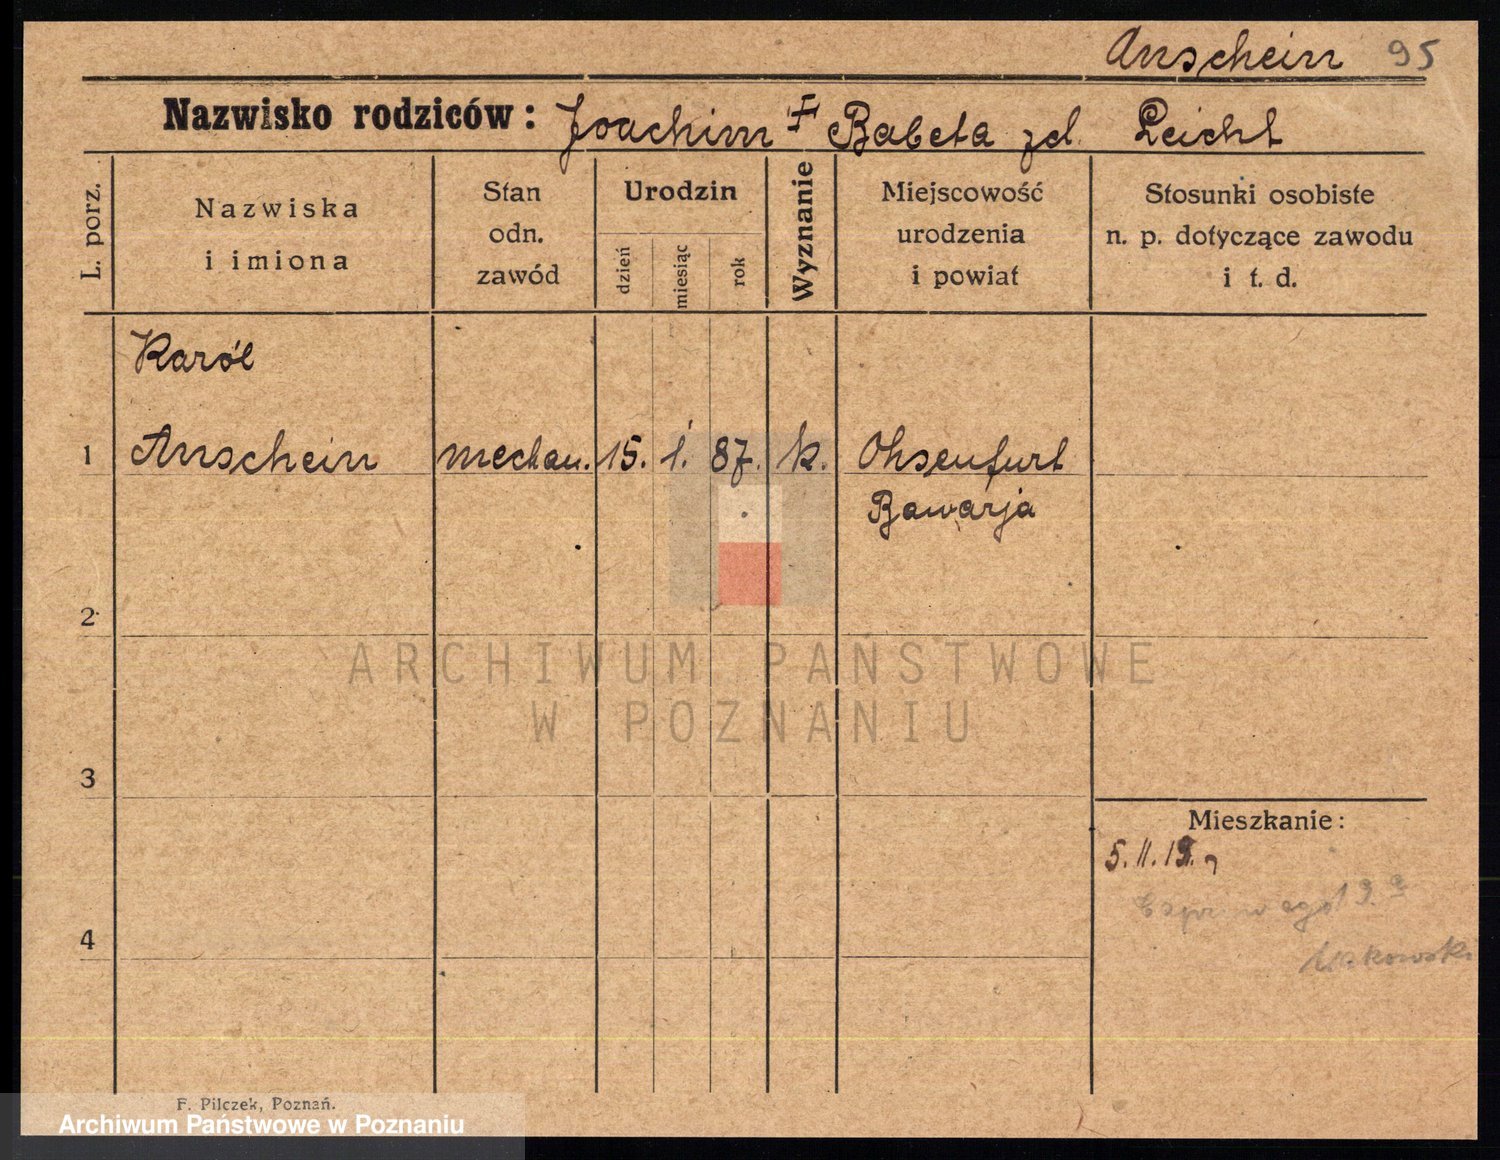 Anschein 95
Nazwisko rodziców: Joachim + Babeta zd. Leicht
L. porz.
Nazwiska
i imiona
Stan
odn.
zawód
Urodzin
dzień
miesiąc
rok
Wyznanie
Miejscowość
urodzenia
i powiat
Stosunki osobiste
n. p. dotyczące zawodu
i t. d.
Karól
1 Anschein mechan. 15. 1. 87. k. Ohsenfurt
Bawarja
2
ARCHIWUM PAŃSTWOWE
W POZNANIU
3
Mieszkanie:
5. II. 19.
4
F. Pilczek, Poznań.
Archiwum Państwowe w Poznaniu